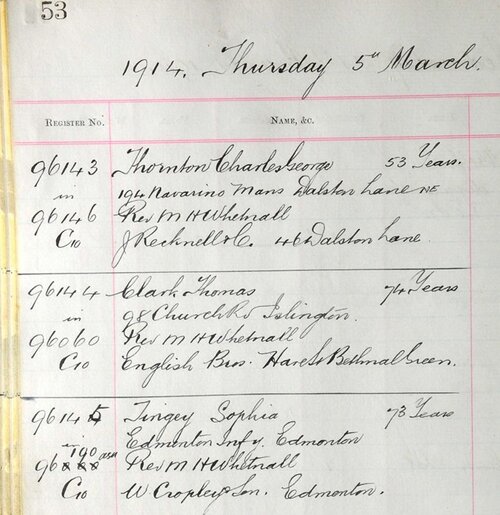 53
1914. Thursday 5th March.
REGISTER NO. NAME, &C.
96143 Thornton Charles George 53 Years.
in 194 Navarino Mans Dalston Lane NE
96146 Rev M H Whetnall
C10 J Recknell & C. 46 Dalston Lane.
96144 Clark Thomas 74 Years
in 98 Church Rd Islington.
96060 Rev M H Whetnall
C10 English Bros. Hare St Bethnal Green.
96145 Tingey Sophia 73 Years
in Edmonton Inf y. Edmonton
190
96 Rev M H Whetnall
C10 W Cropley & Son. Edmonton.